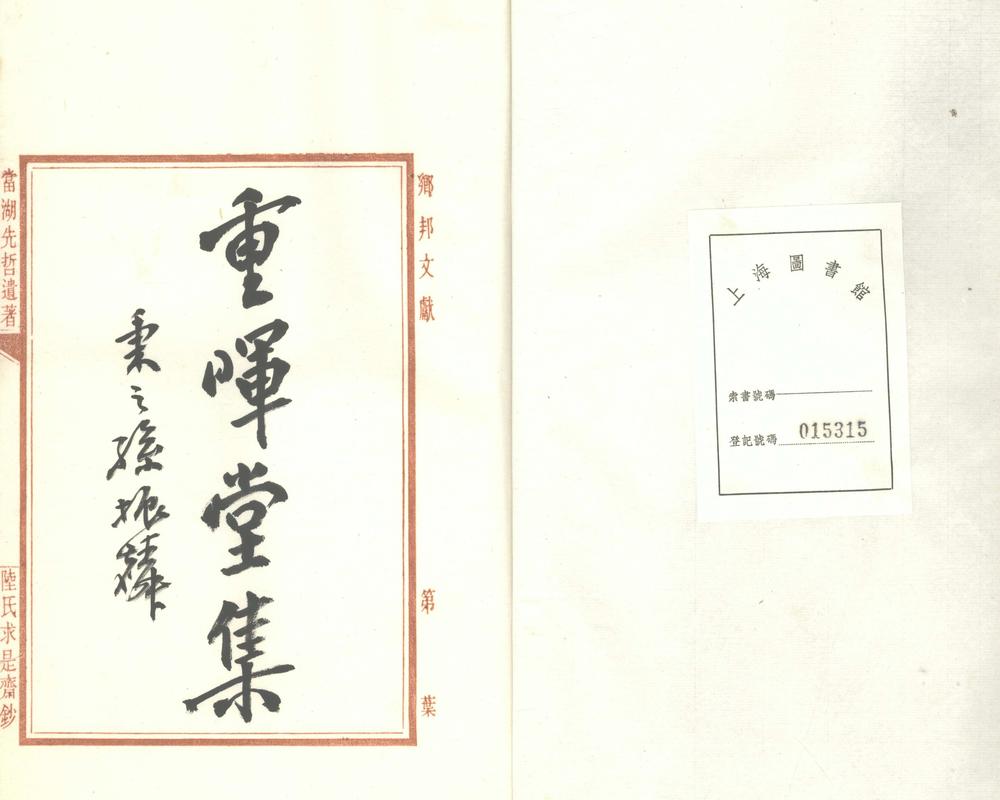 上海圖書館
索書號碼
登記號碼 015315
鄉邦文獻 第 葉
重暉堂集
秉之孫振麟
當湖先哲遺著
陸氏求是齋鈔